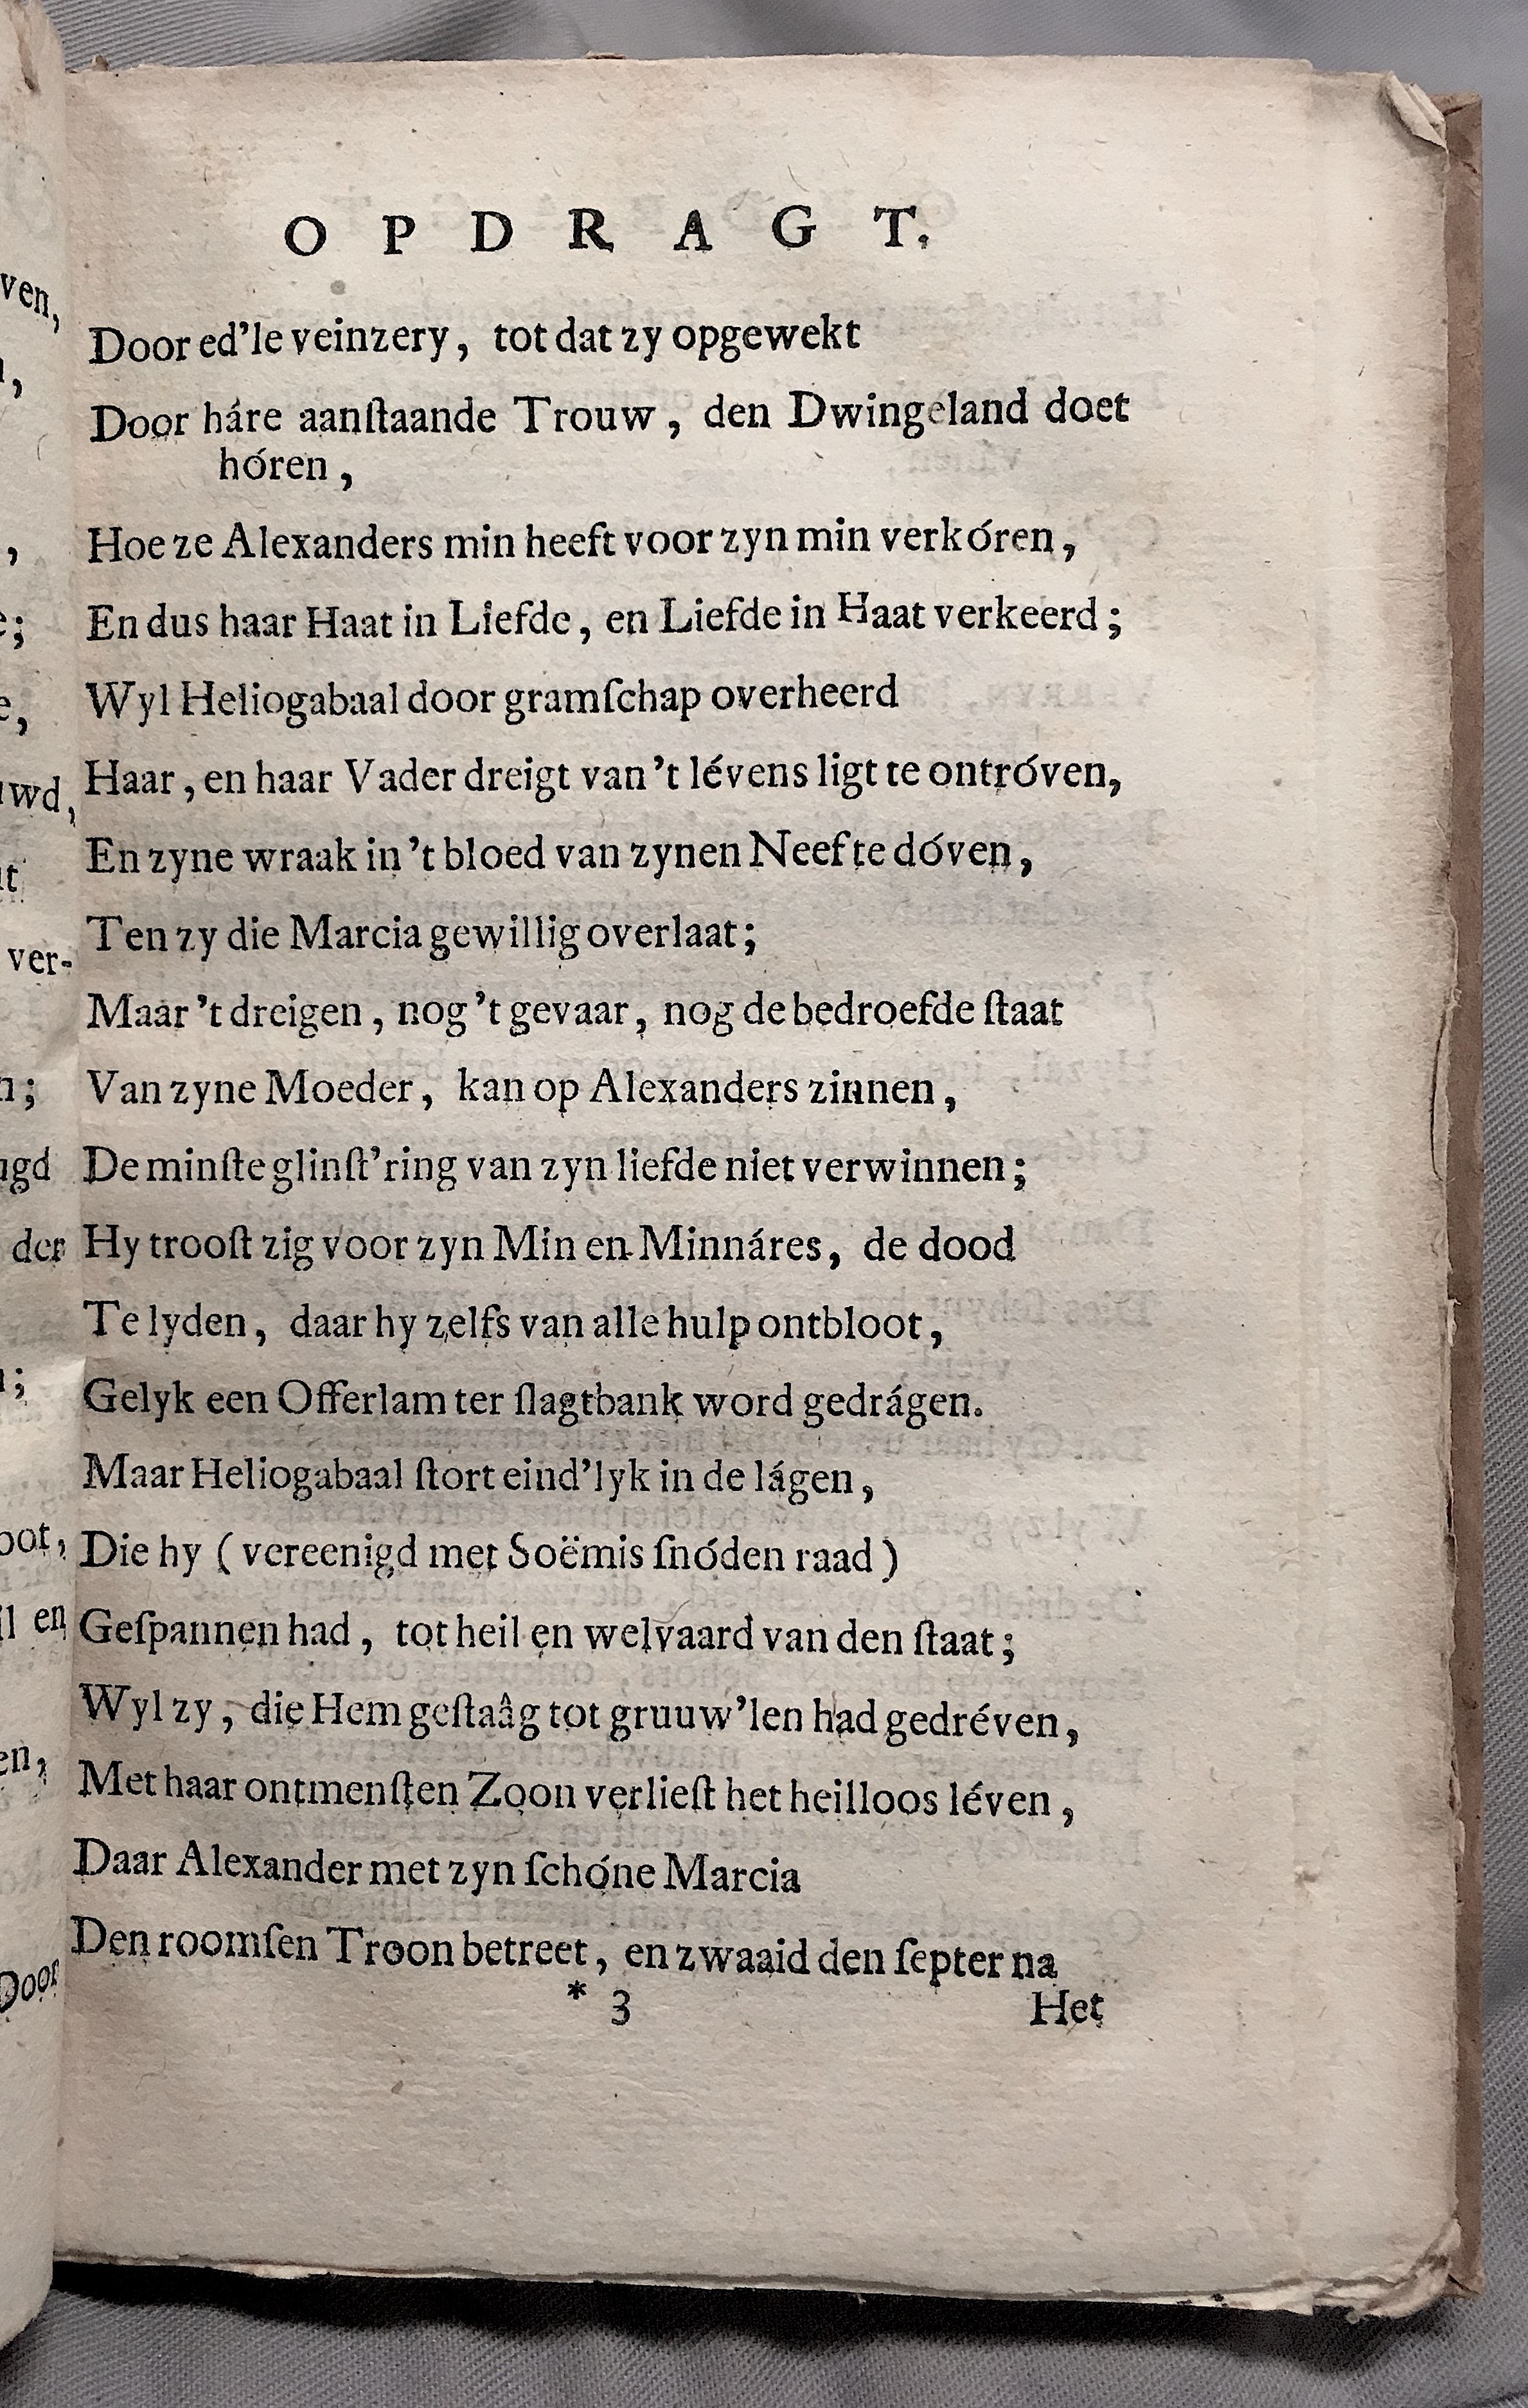 OPDRAGT.
Door ed'le veinzery, tot dat zy opgewekt
Door háre aanſtaande Trouw, den Dwingeland doet
hóren,
Hoe ze Alexanders min heeft voor zyn min verkóren,
En dus haar Haat in Liefde, en Liefde in Haat verkeerd;
Wyl Heliogabaal door gramſchap overheerd
Haar, en haar Vader dreigt van 't lévens ligt te ontróven,
En zyne wraak in 't bloed van zynen Neef te dóven,
Ten zy die Marcia gewillig overlaat;
Maar 't dreigen, nog 't gevaar, nog de bedroefde ſtaat
Van zyne Moeder, kan op Alexanders zinnen,
De minſte glinſt'ring van zyn liefde niet verwinnen;
Hy trooſt zig voor zyn Min en Minnáres, de dood
Te lyden, daar hy zelfs van alle hulp ontbloot,
Gelyk een Offerlam ter ſlagtbank word gedrágen.
Maar Heliogabaal ſtort eind'lyk in de lágen,
Die hy (vereenigd met Soëmis ſnóden raad)
Geſpannen had, tot heil en welvaard van den ſtaat;
Wyl zy, die Hem geſtaâg tot gruuw'len had gedréven,
Met haar ontmenſten Zoon verlieſt het heilloos léven,
Daar Alexander met zyn ſchóne Marcia
Den roomſen Troon betreet, en zwaaid den ſepter na
* 3 Het
ven,
wd,
ver-
der
en
Door